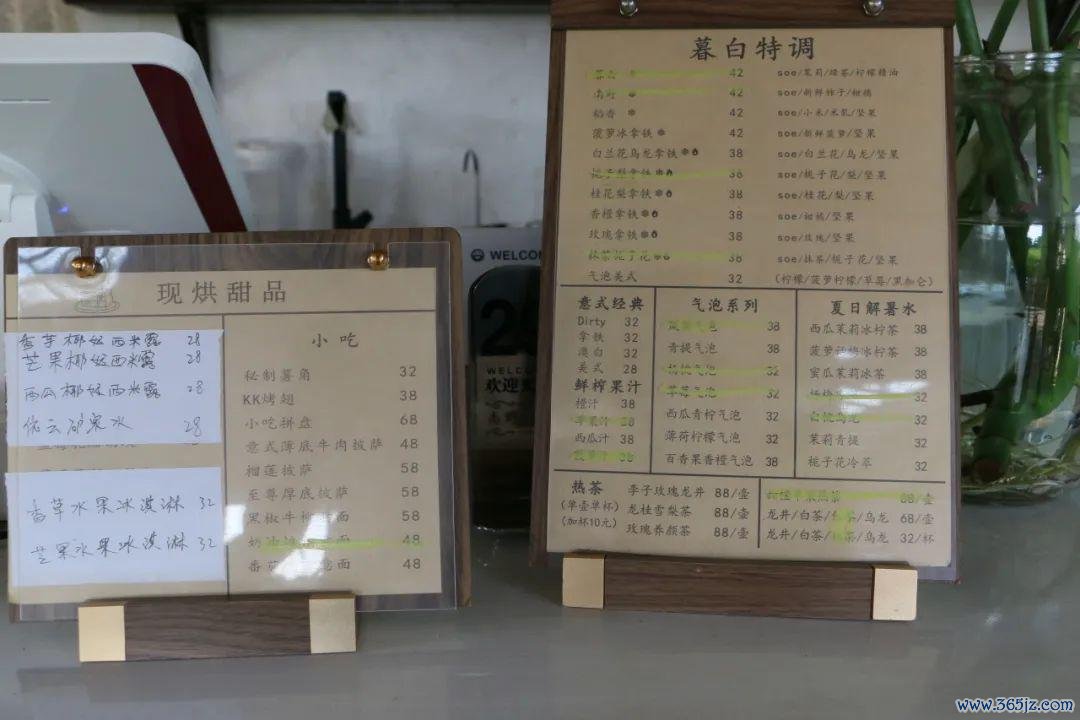 现烘甜品
香芋椰奶西米露 28
芒果椰奶西米露 28
西瓜椰奶西米露 28
依云矿泉水 28
香草水果冰淇淋 32
芒果水果冰淇淋 32
小吃
秘制薯角 32
KK烤翅 38
小吃拼盘 68
意式薄底牛肉披萨 48
榴莲披萨 58
至尊厚底披萨 58
黑椒牛 面 58
奶油 面 48
番茄 面 48
WELCOM
WELCOME
欢迎
暮白特调
42 soe/茉莉/绿茶/柠檬精油
42 soe/新鲜柚子/柑橘
稻香 42 soe/小米/米乳/坚果
菠萝冰拿铁 42 soe/新鲜菠萝/坚果
白兰花乌龙拿铁 38 soe/白兰花/乌龙/坚果
栀子梨拿铁 38 soe/栀子花/梨/坚果
桂花梨拿铁 38 soe/桂花/梨/坚果
香橙拿铁 38 soe/柑橘/坚果
玫瑰拿铁 38 soe/玫瑰/坚果
抹茶栀子花 38 soe/抹茶/栀子花/坚果
气泡美式 32 (柠檬/菠萝柠檬/草莓/黑加仑)
意式经典
Dirty 32
拿铁 32
澳白 32
美式 28
鲜榨果汁
橙汁 38
苹果汁 28
西瓜汁 38
菠萝汁 38
气泡系列
气泡 38
青提气泡 38
杨桃气泡 32
草莓气泡 32
西瓜青柠气泡 32
薄荷柠檬气泡 32
百香果香橙气泡 38
夏日解暑水
西瓜茉莉冰柠茶 38
菠萝 冰柠茶 38
蜜瓜茉莉冰茶 38
32
白桃乌龙 32
茉莉青提 32
栀子花冷萃 32
热茶
(单壶单杯)
(加杯10元)
李子玫瑰龙井 88/壶
龙桂雪梨茶 88/壶
玫瑰养颜茶 88/壶
苹果热茶 88/壶
龙井/白茶/ /乌龙 68/壶
龙井/白茶/ /乌龙 32/杯
www.365jz.com